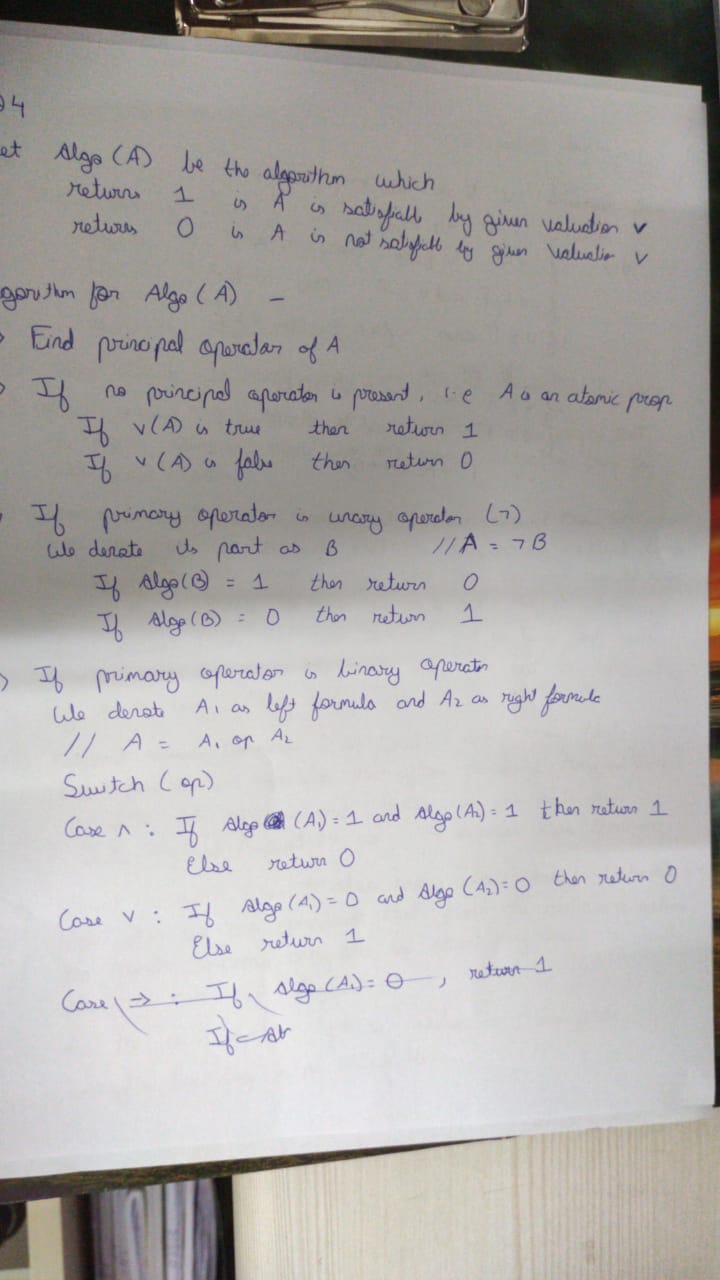 24
et Algo (A) be the algorithm which
returns 1 is A is satisfiable by given valuation v
returns 0 is A is not satisfible by given valuation v
gorithm for Algo (A) -
Find principal operator of A
If no principal operator is present, i.e A is an atomic prop
If v(A) is true then return 1
If v(A) is false then return 0
If primary operator is unary operator (¬)
We denote its part as B // A = ¬B
If Algo(B) = 1 then return 0
If Algo(B) = 0 then return 1
If primary operator is binary operator
We denote A1 as left formula and A2 as right formula
// A = A1 op A2
Switch (op)
Case ∧ : If Algo (A1) = 1 and Algo (A2) = 1 then return 1
Else return 0
Case ∨ : If Algo (A1) = 0 and Algo (A2) = 0 then return 0
Else return 1
Case ⇒ : If Algo (A1) = 0, return 1
If